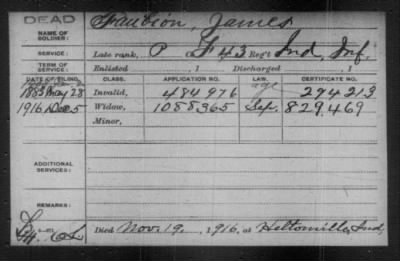 DEAD
NAME OF SOLDIER: Faubion, James
SERVICE: Late rank, P F 43 Reg't Ind. Inf.
TERM OF SERVICE: Enlisted , 1 Discharged , 1
DATE OF FILING. CLASS. APPLICATION NO. LAW. CERTIFICATE NO.
1883 May 28 Invalid, 484976 age 294213
1916 Dec 5 Widow, 1088365 Sep. 829469
Minor,
ADDITIONAL SERVICES:
REMARKS:
Died Nov. 19, 1916, at Heltonville, Ind,